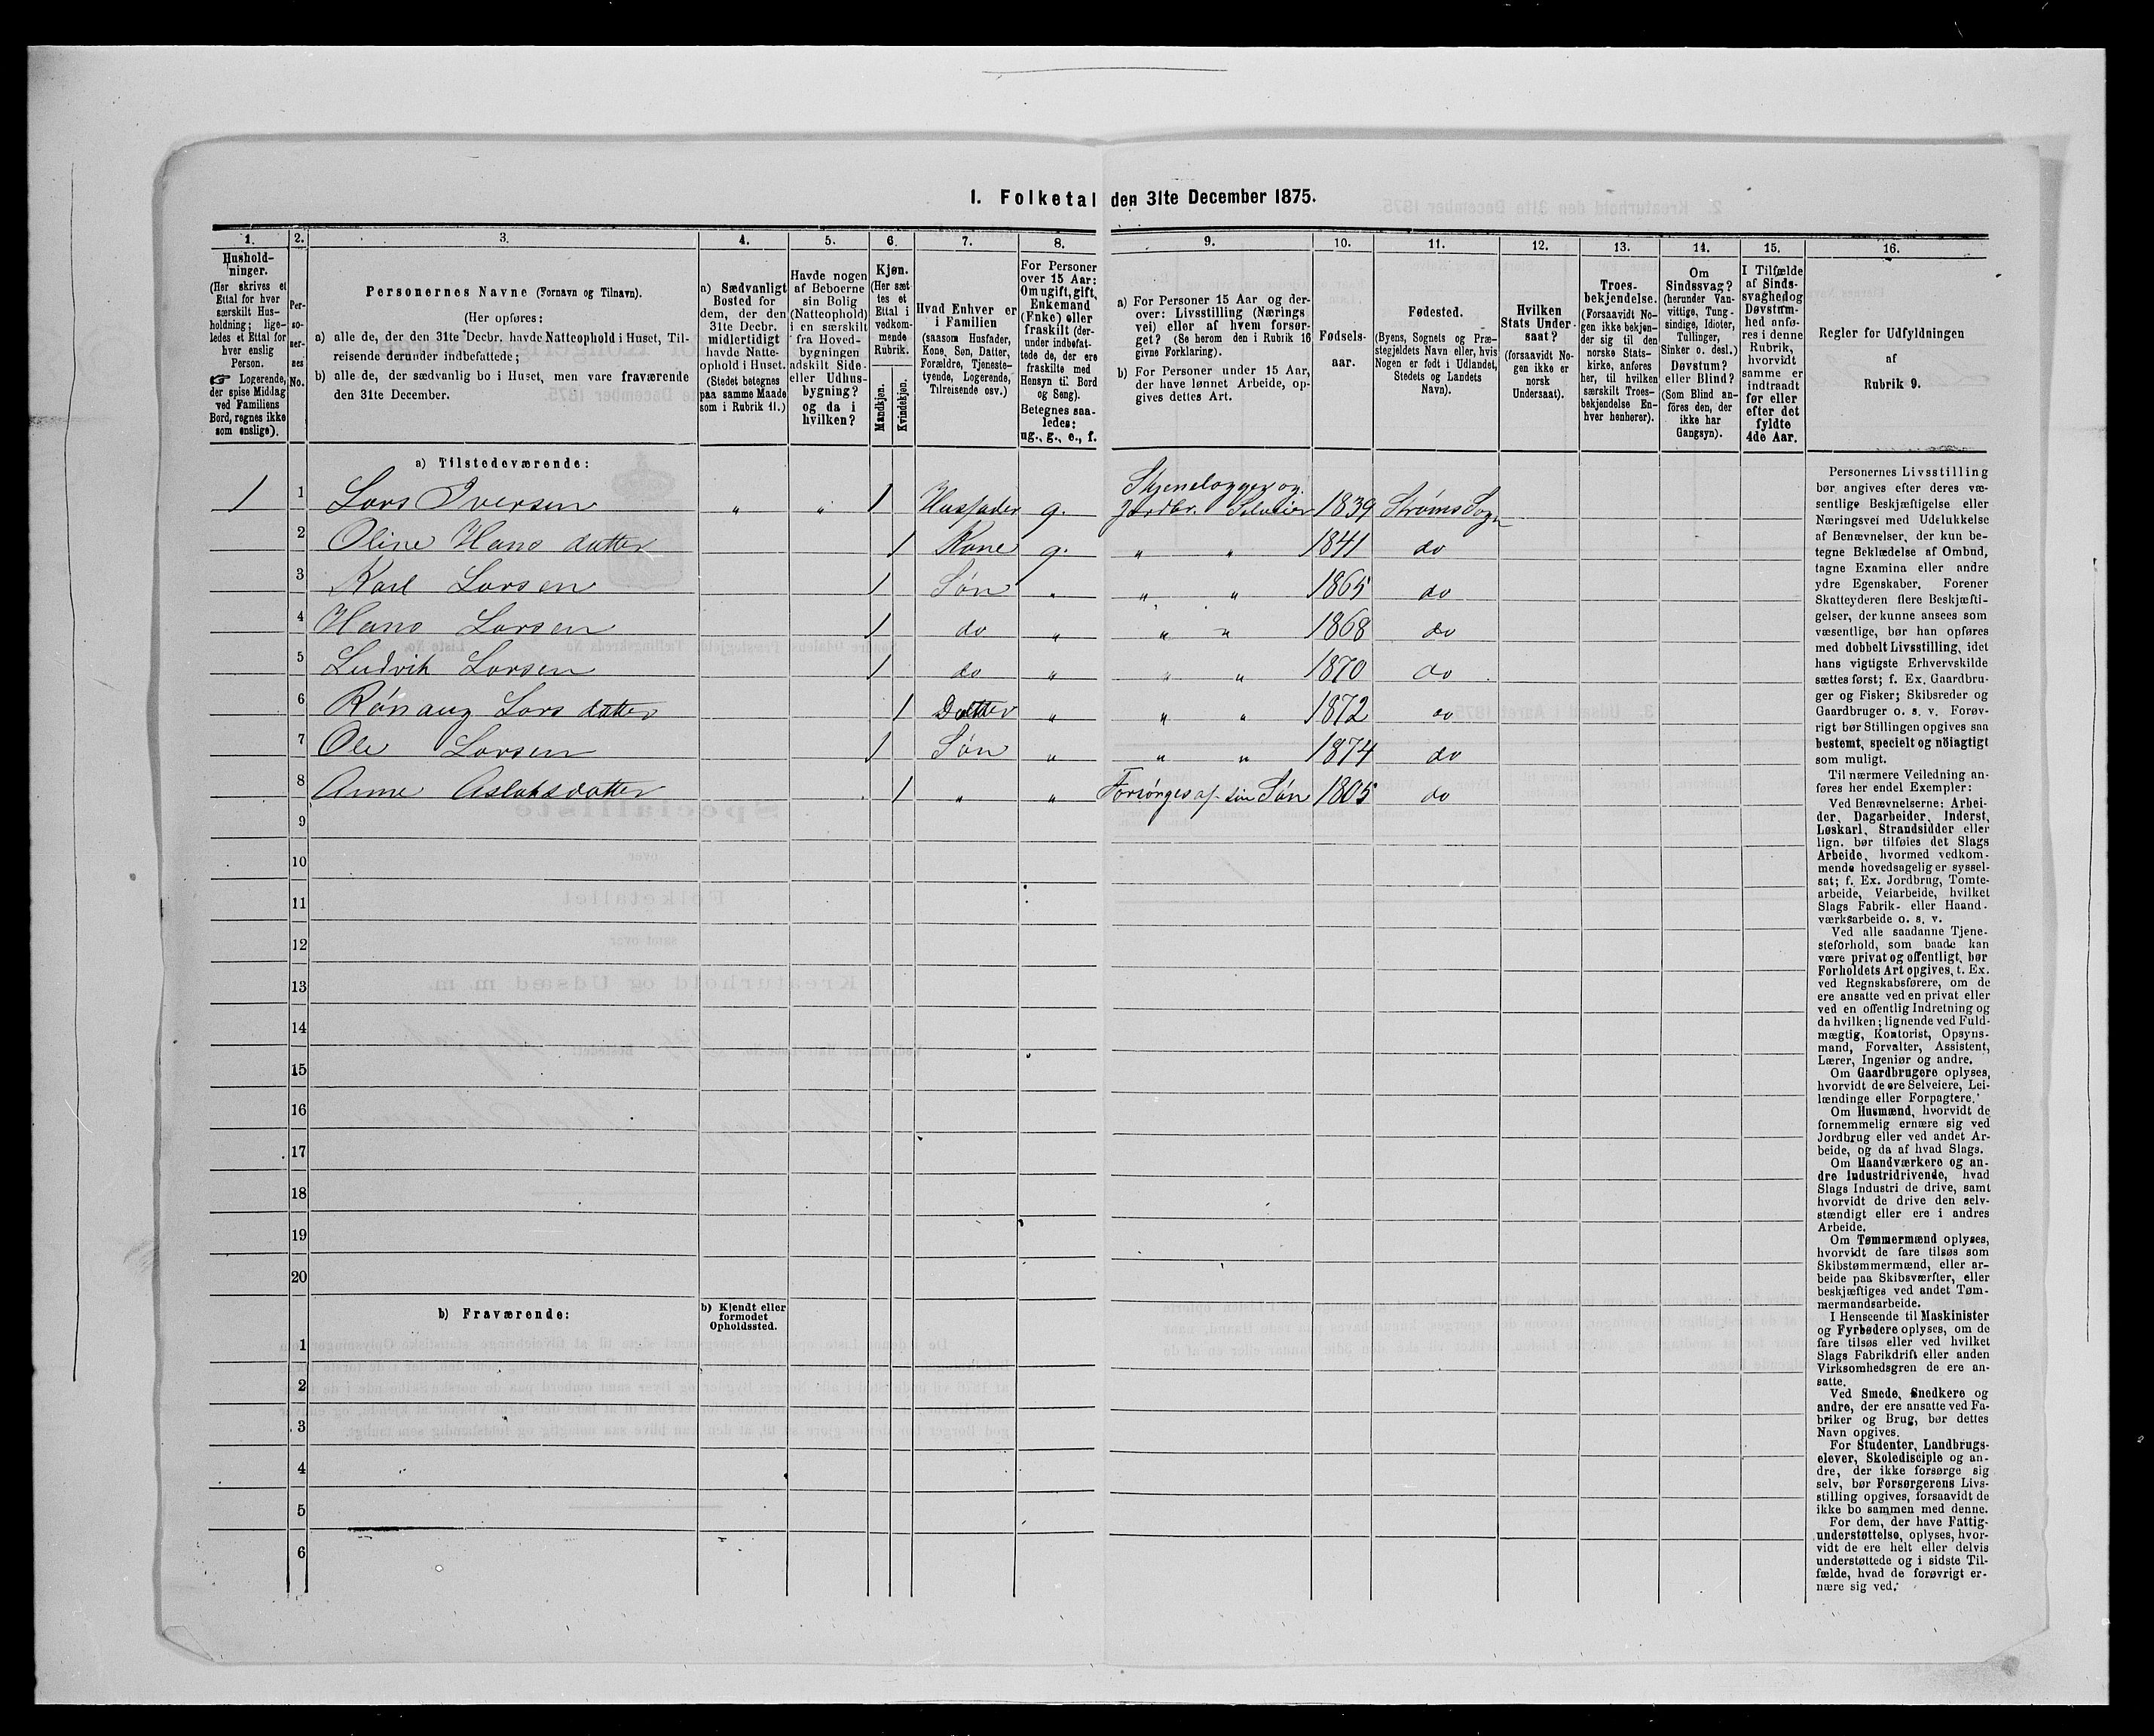 1. Folketal den 31te December 1875.
1. 2. 3. 4. 5. 6. 7. 8. 9. 10. 11. 12. 13. 14. 15. 16.
Hushold-
ninger.
(Her skrives et
Ettal for hver
særskilt Hus-
holdning; lige-
ledes et Ettal for
hver enslig
Person.
☞ Logerende,
der spise Middag
ved Familiens
Bord, regnes ikke
som enslige).
Per-
so-
ner-
nes
No.
Personernes Navne (Fornavn og Tilnavn).
(Her opføres:
a) alle de, der den 31te Decbr. havde Natteophold i Huset, Til-
reisende derunder indbefattede;
b) alle de, der sædvanlig bo i Huset, men vare fraværende
den 31te December.
a) Sædvanligt
Bosted for
dem, der den
31te Decbr.
midlertidigt
havde Natte-
ophold i Huset.
(Stedet betegnes
paa samme Maade
som i Rubrik 11.)
Havde nogen
af Beboerne
sin Bolig
(Natteophold)
i en særskilt
fra Hoved-
bygningen
adskilt Side-
eller Udhus-
bygning?
og da i
hvilken?
Kjøn.
(Her sæt
tes et
Ettal i
vedkom-
mende
Rubrik.
Mandkjøn.
Kvindekjøn.
Hvad Enhver er
i Familien
(saasom Husfader,
Kone, Søn, Datter,
Forældre, Tjeneste-
tyende, Logerende,
Tilreisende osv.)
For Personer
over 15 Aar:
Om ugift, gift,
Enkemand
(Enke) eller
fraskilt (der-
under indbefat-
tede de, der ere
fraskilte med
Hensyn til Bord
og Seng).
Betegnes saa-
ledes:
ug., g., e., f.
a) For Personer 15 Aar og der-
over: Livsstilling (Nærings
vei) eller af hvem forsør-
get? (Se herom den i Rubrik 16
givne Forklaring).
b) For Personer under 15 Aar,
der have lønnet Arbeide, op-
gives dettes Art.
Fødsels-
aar.
Fødested.
(Byens, Sognets og Præ-
stegjeldets Navn eller, hvis
Nogen er født i Udlandet,
Stedets og Landets
Navn).
Hvilken
Stats Under-
saat?
(forsaavidt No-
gen ikke er
norsk
Undersaat).
Troes-
bekjendelse.
(Forsaavidt No-
gen ikke bekjen-
der sig til den
norske Stats-
kirke, anføres
her, til hvilken
særskilt Troes-
bekjendelse En-
hver henhører).
Om
Sindssvag?
(herunder Van-
vittige, Tung-
sindige, Idioter,
Tullinger,
Sinker o. desl.)
Døvstum?
eller Blind?
(Som Blind an-
føres den, der
ikke har
Gangsyn).
I Tilfælde
af Sinds-
svaghedog
Døvstum-
hed anfø-
res i denne
Rubrik,
hvorvidt
samme er
indtraadt
før eller
efter det
fyldte
4de Aar.
Regler for Udfyldningen
af
Rubrik 9.
a) Tilstedeværende:
1 1 Lars Iversen " " 1 Husfader g. Jordbr. Selveier 1839 Strøms Sogn
2 Oline Hans datter 1 Kone g. " " 1841 do
3 Karl Larsen 1 Søn " " " 1865 do
4 Hans Larsen 1 do " " " 1868 do
5 Ludvik Larsen 1 do " " " 1870 do
6 Rønaug Lars datter 1 Datter " " " 1872 do
7 Ole Larsen 1 Søn " " " 1874 do
8 Anne Aslaksdatter 1 " " Forsørges af sin Søn 1805 do
9
10
11
12
13
14
15
16
17
18
19
20
b) Fraværende:
b) Kjendt eller
formodet
Opholdssted.
1
2
3
4
5
6
Personernes Livsstilling
bør angives efter deres væ-
sentlige Beskjæftigelse eller
Næringsvei med Udelukkelse
af Benævnelser, der kun be-
tegne Beklædelse af Ombud,
tagne Examina eller andre
ydre Egenskaber. Forener
Skatteyderen flere Beskjæfti-
gelser, der kunne ansees som
væsentlige, bør han opføres
med dobbelt Livsstilling, idet
hans vigtigste Erhvervskilde
sættes først; f. Ex. Gaardbru-
ger og Fisker; Skibsreder og
Gaardbruger o. s. v. Forøv-
rigt bør Stillingen opgives saa
bestemt, specielt og nöiagtigt
som muligt.
Til nærmere Veiledning an-
føres her endel Exempler:
Ved Benævnelserne: Arbei-
der, Dagarbeider, Inderst,
Løskarl, Strandsidder eller
lign. bør tilføies det Slags
Arbeide, hvormed vedkom-
mende hovedsagelig er syssel-
sat; f. Ex. Jordbrug, Tomte-
arbeide, Veiarbeide, hvilket
Slags Fabrik- eller Haand-
værksarbeide o. s. v.
Ved alle saadanne Tjene-
steforhold, som baade kan
være privat og offentligt, bør
Forholdets Art opgives, t. Ex.
ved Regnskabsførere, om de
ere ansatte ved en privat eller
ved en offentlig Indretning og
da hvilken; lignende ved Fuld-
mægtig, Kontorist, Opsyns-
mand, Forvalter, Assistent,
Lærer, Ingeniør og andre.
Om Gaardbrugere oplyses,
hvorvidt de ere Selveiere, Lei-
lændinge eller Forpagtere.
Om Husmænd, hvorvidt de
fornemmelig ernære sig ved
Jordbrug eller ved andet Ar-
beide, og da af hvad Slags.
Om Haandværkere og an-
dre Industridrivende, hvad
Slags Industri de drive, samt
hvorvidt de drive den selv-
stændigt eller ere i andres
Arbeide.
Om Tømmermænd oplyses,
hvorvidt de fare tilsøs som
Skibstømmermænd, eller ar-
beide paa Skibsværfter, eller
beskjæftiges ved andet Tøm-
mermandsarbeide.
I Henseende til Maskinister
og Fyrbødere oplyses, om de
fare tilsøs eller ved hvilket
Slags Fabrikdrift eller anden
Virksomhedsgren de ere an-
satte.
Ved Smede, Snedkere og
andre, der ere ansatte ved Fa-
briker og Brug, bør dettes
Navn opgives.
For Studenter, Landbrugs-
elever, Skoledisciple og an-
dre, der ikke forsørge sig
selv, bør Forsørgerens Livs-
stilling opgives, forsaavidt de
ikke bo sammen med denne.
For dem, der have Fattig-
understøttelse, oplyses, hvor-
vidt de ere helt eller delvis
understøttede og i sidste Til-
fælde, hvad de forøvrigt er-
nære sig ved.